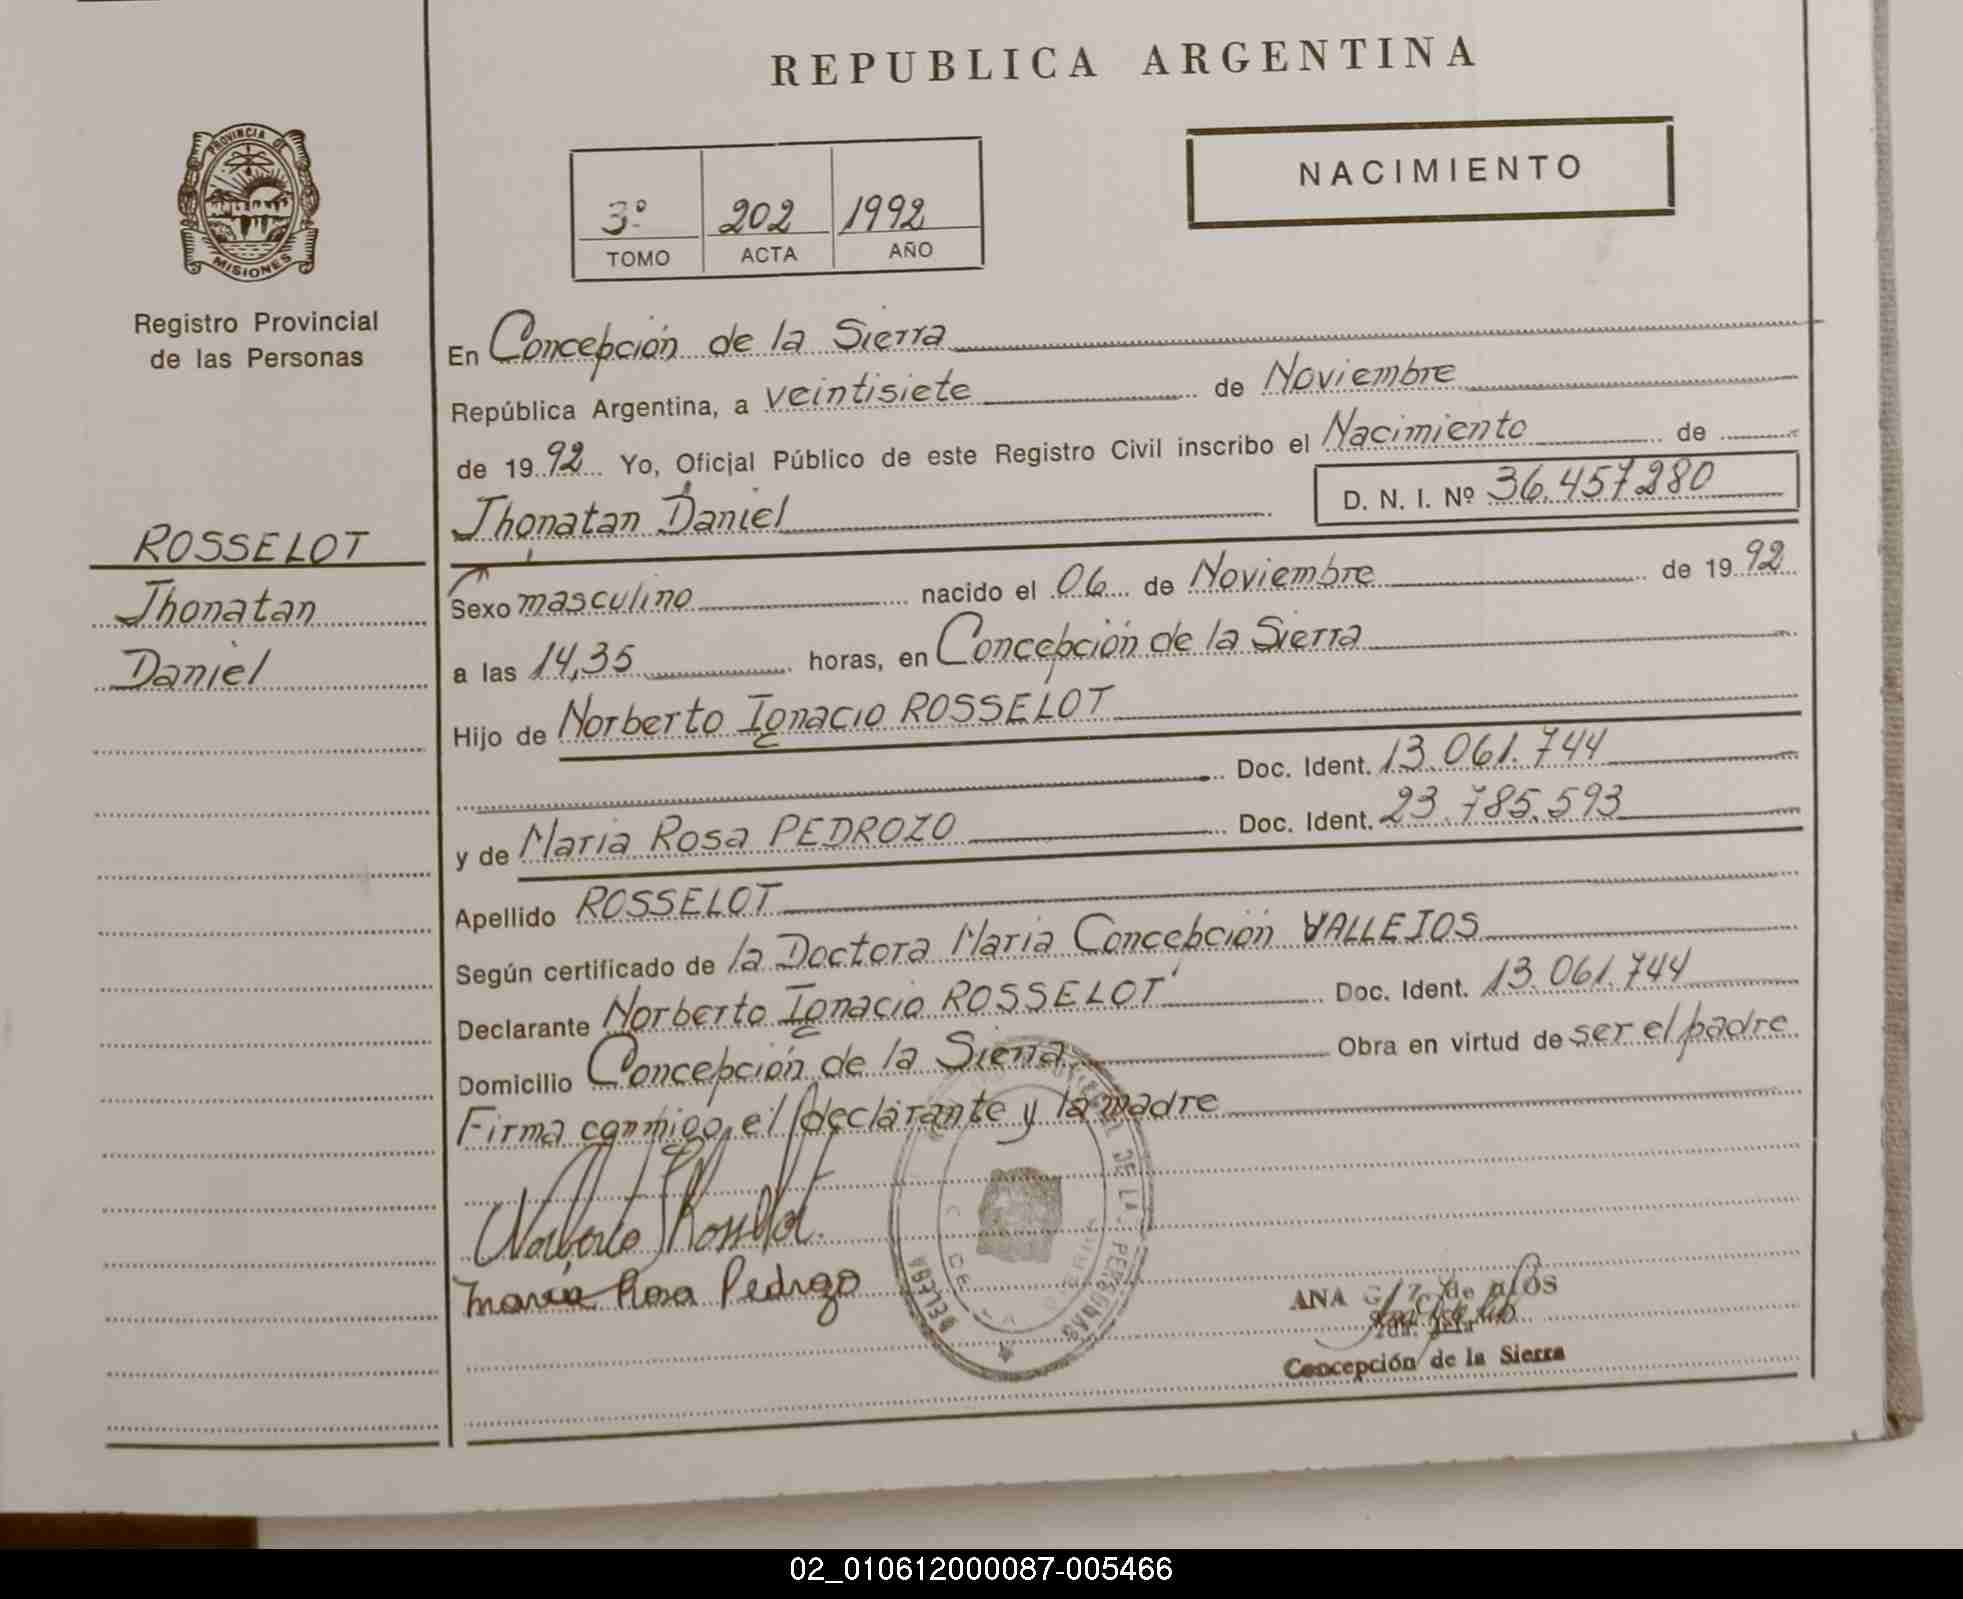 REPUBLICA ARGENTINA
PROVINCIA DE
MISIONES
Registro Provincial
de las Personas
NACIMIENTO
3º 202 1992
TOMO ACTA AÑO
ROSSELOT
Jhonatan
Daniel
En Concepción de la Sierra
República Argentina, a veintisiete de Noviembre
de 1992 Yo, Oficial Público de este Registro Civil inscribo el Nacimiento de
Jhonatan Daniel D. N. I. Nº 36.457.280
Sexo masculino nacido el 06 de Noviembre de 1992
a las 14,35 horas, en Concepción de la Sierra
Hijo de Norberto Ignacio ROSSELOT
Doc. Ident. 13.061.744
y de Maria Rosa PEDROZO Doc. Ident. 23.785.593
Apellido ROSSELOT
Según certificado de la Doctora Maria Concepción VALLEJOS
Declarante Norberto Ignacio ROSSELOT Doc. Ident. 13.061.744
Domicilio Concepción de la Sierra Obra en virtud de ser el padre
Firma conmigo el declarante y la madre
Norberto Rosselot
María Rosa Pedrozo
DE LAS PERSONAS
ANA
Concepción de la Sierra
02_010612000087-005466